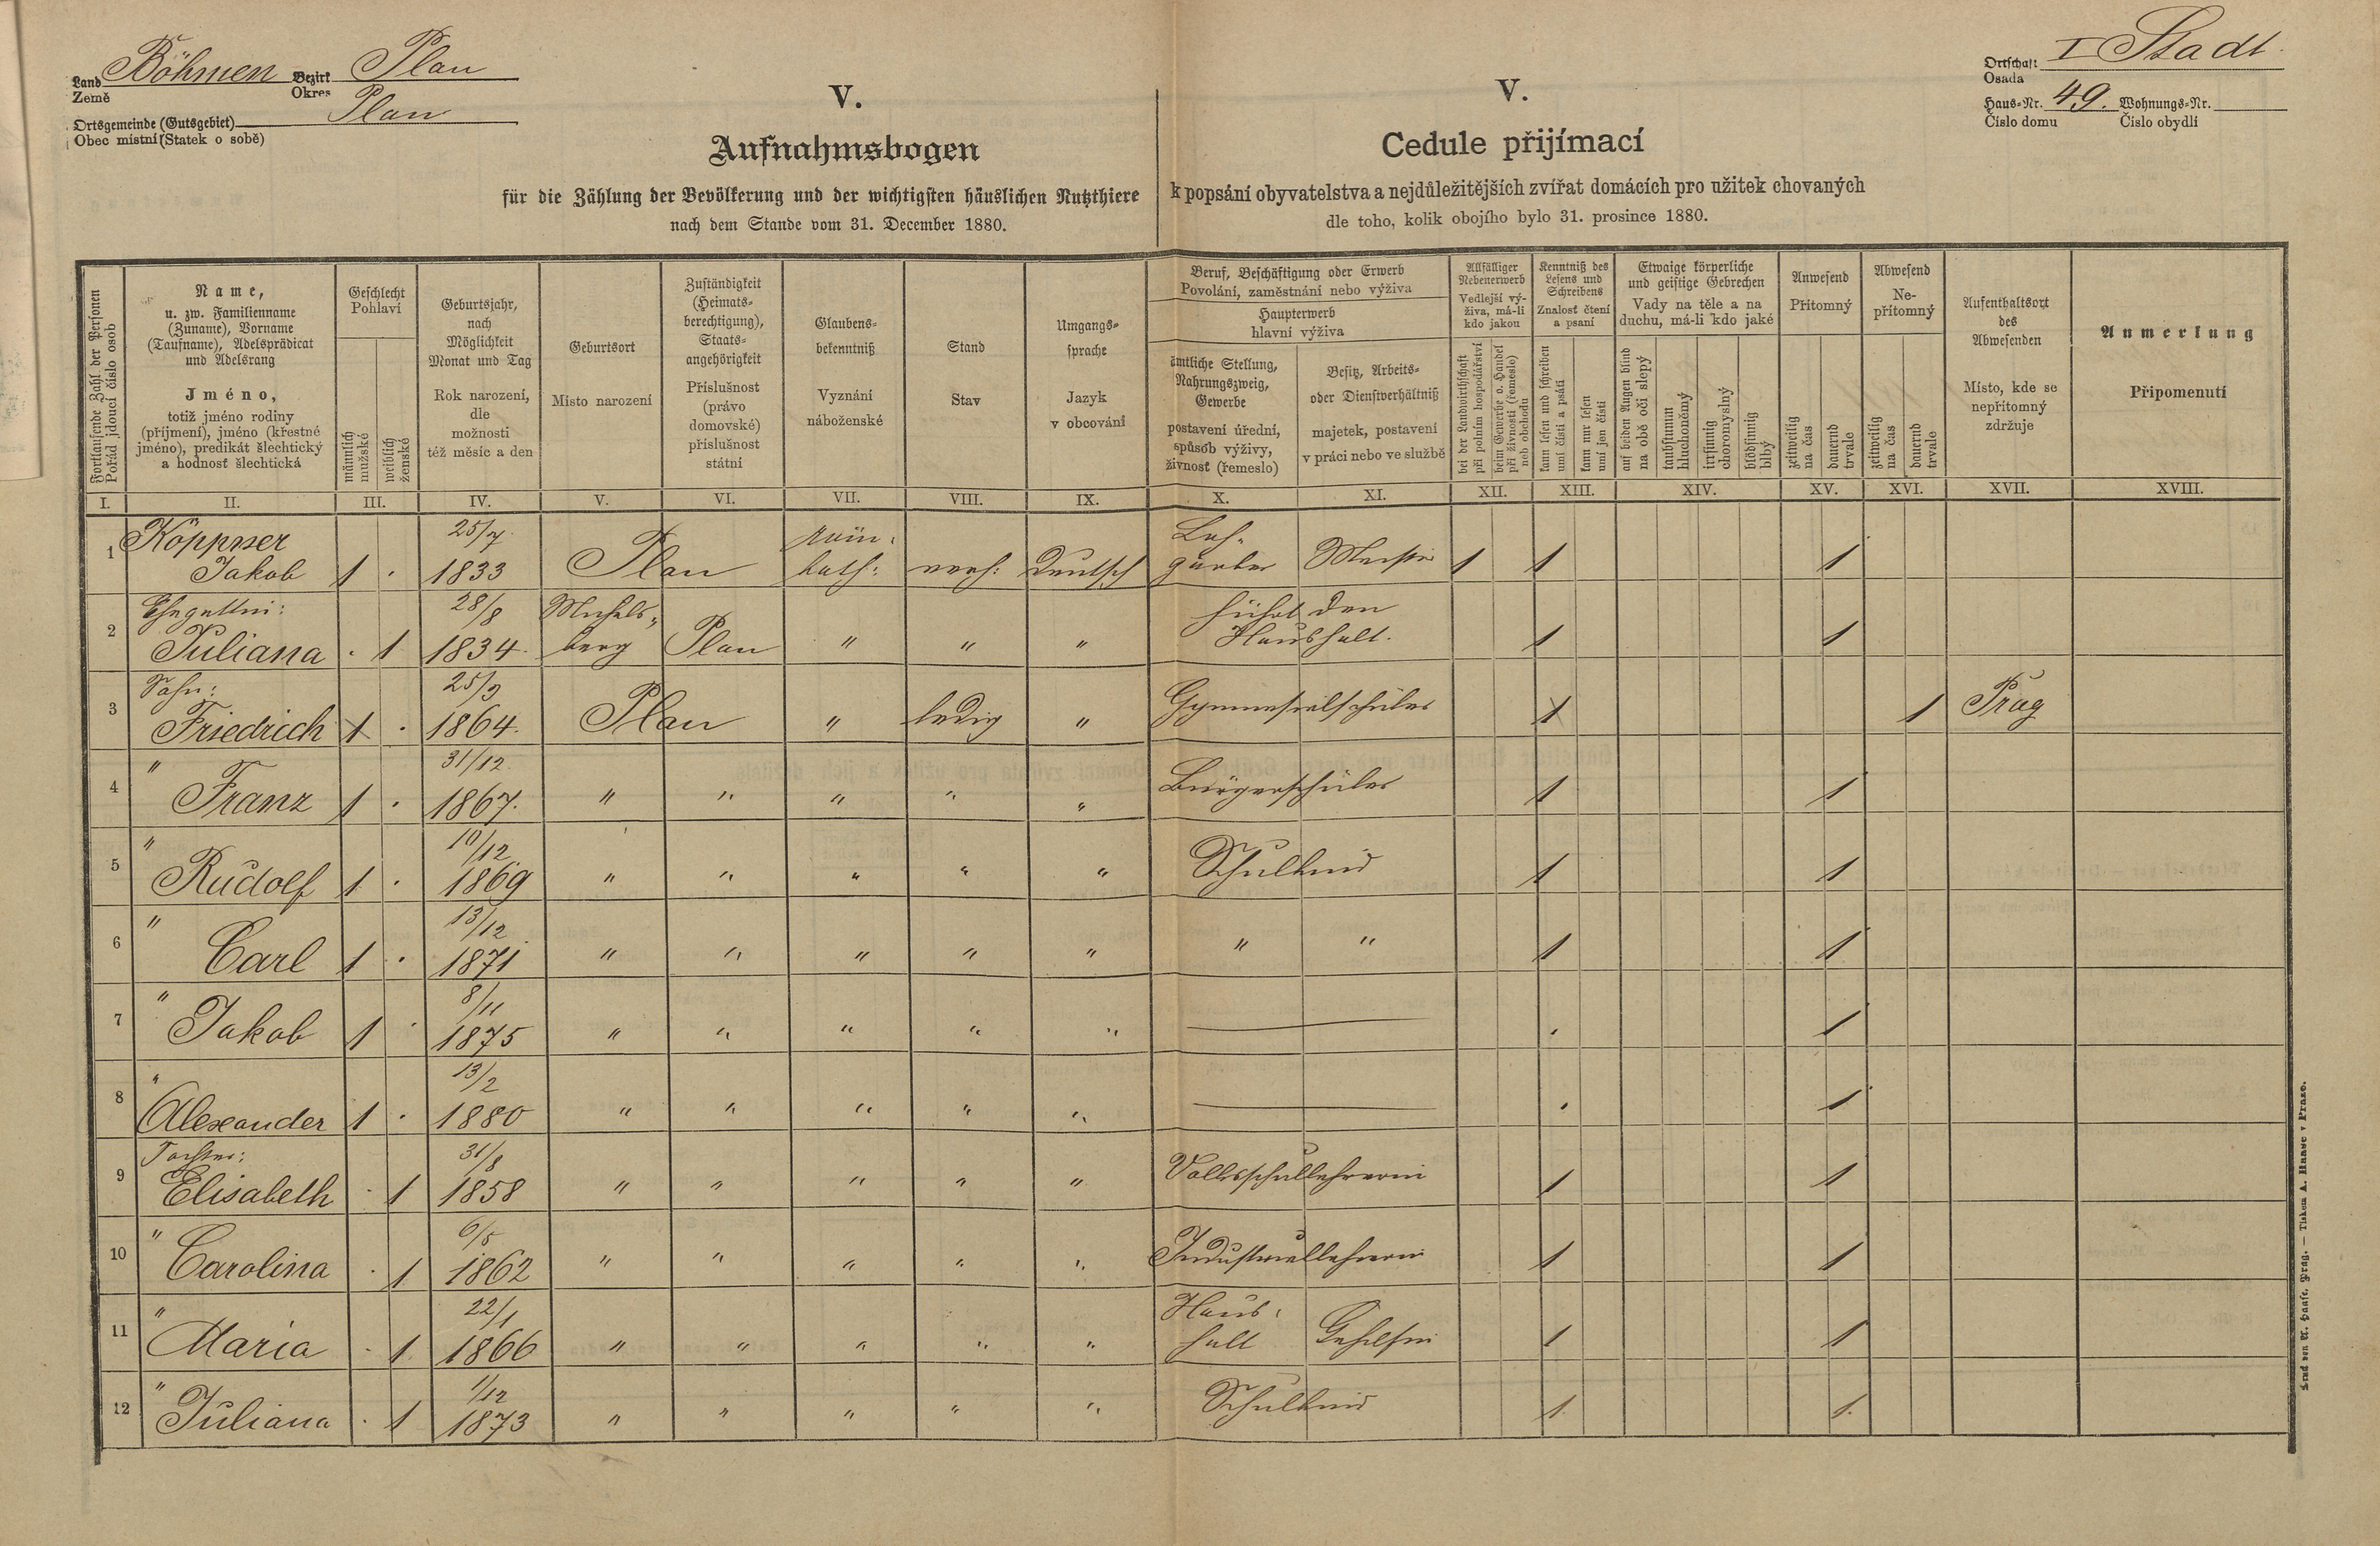 Land Böhmen Bezirk Plan
Země Okres
Ortsgemeinde (Gutsgebiet) Plan
Obec místní (Statek o sobě)
V.
Aufnahmsbogen
für die Zählung der Bevölkerung und der wichtigsten häuslichen Nutzthiere
nach dem Stande vom 31. December 1880.
V.
Cedule přijímací
k popsání obyvatelstva a nejdůležitějších zvířat domácích pro užitek chovaných
dle toho, kolik obojího bylo 31. prosince 1880.
Ortschaft I Stadt
Osada
Haus-Nr. 49. Wohnungs-Nr.
Číslo domu Číslo obydlí
Fortlaufende Zahl der Personen
Pořád jdoucí číslo osob
Name,
u. zw. Familienname
(Zuname), Vorname
(Taufname), Adelsprädicat
und Adelsrang
Jméno,
totiž jméno rodiny
(příjmení), jméno (křestné
jméno), predikát šlechtický
a hodnosť šlechtická
Geschlecht
Pohlaví
männlich
mužské
weiblich
ženské
Geburtsjahr,
nach
Möglichkeit
Monat und Tag
Rok narození,
dle
možnosti
též měsíc a den
Geburtsort
Místo narození
Zuständigkeit
(Heimats-
berechtigung),
Staats-
angehörigkeit
Příslušnost
(právo
domovské)
příslušnost
státní
Glaubens-
bekenntniß
Vyznání
náboženské
Stand
Stav
Umgangs-
sprache
Jazyk
v obcování
Beruf, Beschäftigung oder Erwerb
Povolání, zaměstnání nebo výživa
Haupterwerb
hlavní výživa
ämtliche Stellung,
Nahrungszweig,
Gewerbe
postavení úřední,
spůsob výživy,
živnosť (řemeslo)
Besitz, Arbeits-
oder Dienstverhältniß
majetek, postavení
v práci nebo ve službě
Allfälliger
Nebenerwerb
Vedlejší vý-
živa, má-li
kdo jakou
bei der Landwirthschaft
při polním hospodářství
beim Gewerbe o. Handel
při živnosti (řemesle)
neb obchodu
Kenntniß des
Lesens und
Schreibens
Znalosť čtení
a psaní
kann lesen und schreiben
umí čísti a psáti
kann nur lesen
umí jen čísti
Etwaige körperliche
und geistige Gebrechen
Vady na těle a na
duchu, má-li kdo jaké
auf beiden Augen blind
na obě oči slepý
taubstumm
hluchoněmý
irrsinnig
choromyslný
blödsinnig
blbý
Anwesend
Přítomný
zeitweilig
na čas
dauernd
trvale
Abwesend
Ne-
přítomný
zeitweilig
na čas
dauernd
trvale
Aufenthaltsort
des
Abwesenden
Místo, kde se
nepřítomný
zdržuje
Anmerkung
Připomenutí
I. II. III. IV. V. VI. VII. VIII. IX. X. XI. XII. XIII. XIV. XV. XVI. XVII. XVIII.
Köppner 25/7 röm: Loh-
1 Jakob 1 . 1833 Plan kath: verh: Deutsch gärber Meister 1 1 1
Ehegattin: 28/8 Michels- führt den
2 Juliana . 1 1834. berg Plan " " " Haushalt. 1 1
Sohn: 25/9
3 Friedrich 1 . 1864. Plan " ledig " Gymnasialschüler 1 1 Prag
" 31/12.
4 Franz 1 . 1867. " " " " " Bürgerschüler 1 1
" 10/12
5 Rudolf 1 . 1869 " " " " " Schulkind 1 1
" 13/12
6 Carl 1 . 1871 " " " " " " " 1 1
" 8/11
7 Jakob 1 . 1875 " " " " " — . 1
" 13/2
8 Alexander 1 . 1880 " " " " " — . 1
Tochter: 31/8
9 Elisabeth . 1 1858 " " " " " Volksschullehrerin 1 1
" 6/5
10 Carolina . 1 1862 " " " " " Industriallehrerin 1 1
" 22/1 Haus-
11 Maria . 1. 1866 " " " " " halt Gehilfin 1 1
" 1/12
12 Juliana . 1 1873 " " " " " Schulkind 1. 1.
Druck von A. Haase, Prag. — Tiskem A. Haase v Praze.